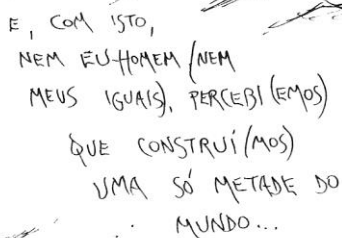 E, COM ISTO,
NEM EU-HOMEM (NEM
MEUS IGUAIS), PERCEBI(EMOS)
QUE CONSTRUÍ(MOS)
UMA SÓ METADE DO
MUNDO...